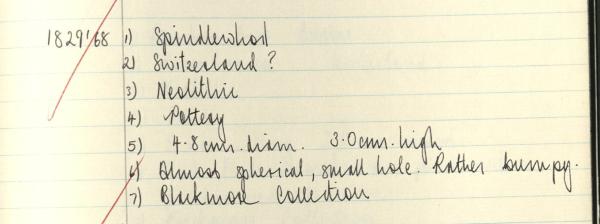 1829'68 1) Spindlewhorl
2) Switzerland ?
3) Neolithic
4) Pottery
5) 4.8cms. diam. 3.0cms. high
6) Almost spherical, small hole. Rather bumpy.
7) Blackmore Collection